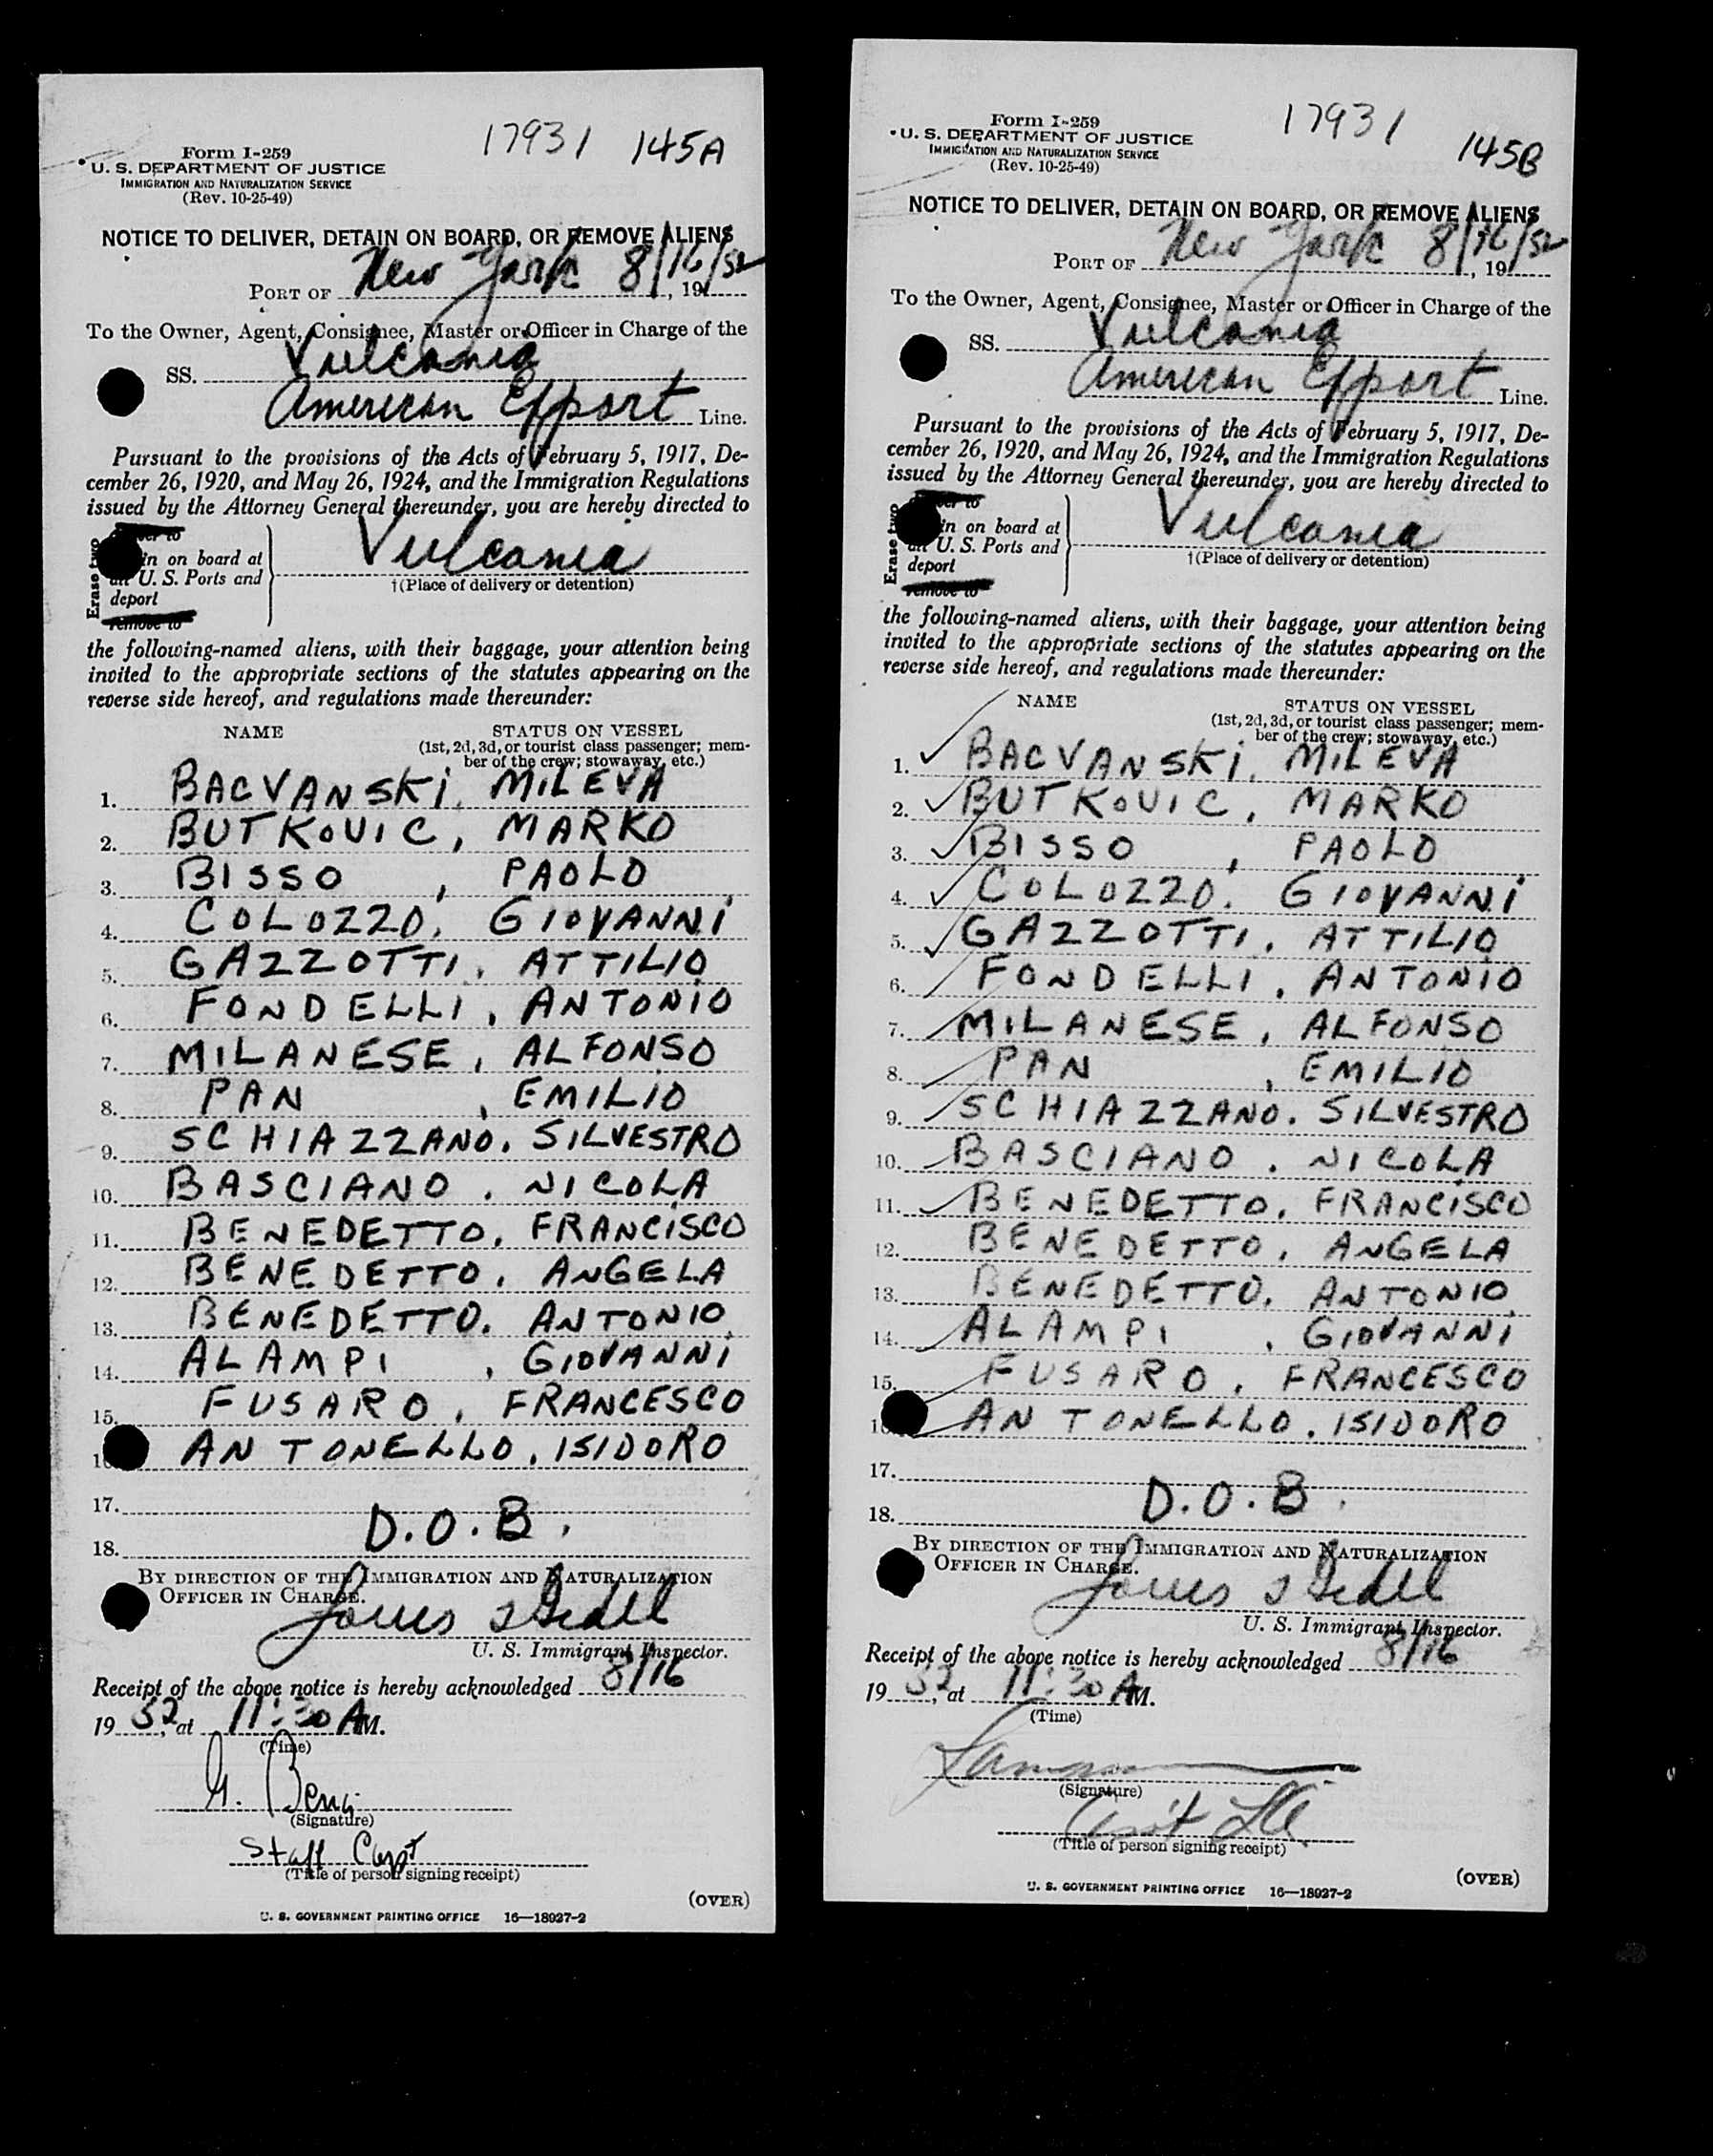 17931 145A
Form I-259
U. S. DEPARTMENT OF JUSTICE
IMMIGRATION AND NATURALIZATION SERVICE
(Rev. 10-25-49)
NOTICE TO DELIVER, DETAIN ON BOARD, OR REMOVE ALIENS
PORT OF New York 8/16/52, 19
To the Owner, Agent, Consignee, Master or Officer in Charge of the
SS. Vulcania
American Export Line.
Pursuant to the provisions of the Acts of February 5, 1917, De-
cember 26, 1920, and May 26, 1924, and the Immigration Regulations
issued by the Attorney General thereunder, you are hereby directed to
Erase two
in on board at
U. S. Ports and
deport
remove to
Vulcania
†(Place of delivery or detention)
the following-named aliens, with their baggage, your attention being
invited to the appropriate sections of the statutes appearing on the
reverse side hereof, and regulations made thereunder:
NAME STATUS ON VESSEL
(1st, 2d, 3d, or tourist class passenger; mem-
ber of the crew; stowaway, etc.)
1. BACVANSKI, MILEVA
2. BUTKOVIC, MARKO
3. BISSO, PAOLO
4. COLOZZO, GIOVANNI
5. GAZZOTTI, ATTILIO
6. FONDELLI, ANTONIO
7. MILANESE, ALFONSO
8. PAN, EMILIO
9. SCHIAZZANO, SILVESTRO
10. BASCIANO, NICOLA
11. BENEDETTO, FRANCISCO
12. BENEDETTO, ANGELA
13. BENEDETTO, ANTONIO
14. ALAMPI, GIOVANNI
15. FUSARO, FRANCESCO
ANTONELLO, ISIDORO
17.
D.O.B.
18.
BY DIRECTION OF THE IMMIGRATION AND NATURALIZATION
OFFICER IN CHARGE.
U. S. Immigrant Inspector.
Receipt of the above notice is hereby acknowledged 8/16
19 52, at 11:30 AM.
(Time)
G.
(Signature)
Staff Capt
(Title of person signing receipt)
(OVER)
U. S. GOVERNMENT PRINTING OFFICE 16—18927-2
17931 145B
Form I-259
U. S. DEPARTMENT OF JUSTICE
IMMIGRATION AND NATURALIZATION SERVICE
(Rev. 10-25-49)
NOTICE TO DELIVER, DETAIN ON BOARD, OR REMOVE ALIENS
PORT OF New York 8/16/52, 19
To the Owner, Agent, Consignee, Master or Officer in Charge of the
SS. Vulcania
American Export Line.
Pursuant to the provisions of the Acts of February 5, 1917, De-
cember 26, 1920, and May 26, 1924, and the Immigration Regulations
issued by the Attorney General thereunder, you are hereby directed to
Erase two
in on board at
U. S. Ports and
deport
remove to
Vulcania
†(Place of delivery or detention)
the following-named aliens, with their baggage, your attention being
invited to the appropriate sections of the statutes appearing on the
reverse side hereof, and regulations made thereunder:
NAME STATUS ON VESSEL
(1st, 2d, 3d, or tourist class passenger; mem-
ber of the crew; stowaway, etc.)
1. BACVANSKI, MILEVA
2. BUTKOVIC, MARKO
3. BISSO, PAOLO
4. COLOZZO, GIOVANNI
5. GAZZOTTI, ATTILIO
6. FONDELLI, ANTONIO
7. MILANESE, ALFONSO
8. PAN, EMILIO
9. SCHIAZZANO, SILVESTRO
10. BASCIANO, NICOLA
11. BENEDETTO, FRANCISCO
12. BENEDETTO, ANGELA
13. BENEDETTO, ANTONIO
14. ALAMPI, GIOVANNI
15. FUSARO, FRANCESCO
ANTONELLO, ISIDORO
17.
D.O.B.
18.
BY DIRECTION OF THE IMMIGRATION AND NATURALIZATION
OFFICER IN CHARGE.
U. S. Immigrant Inspector.
Receipt of the above notice is hereby acknowledged 8/16
19 52, at 11:30 AM.
(Time)
(Signature)
(Title of person signing receipt)
(OVER)
U. S. GOVERNMENT PRINTING OFFICE 16—18927-2